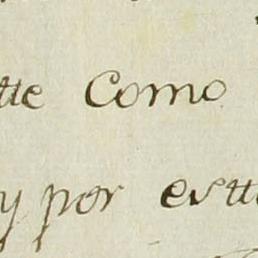 tte Como
y por estt